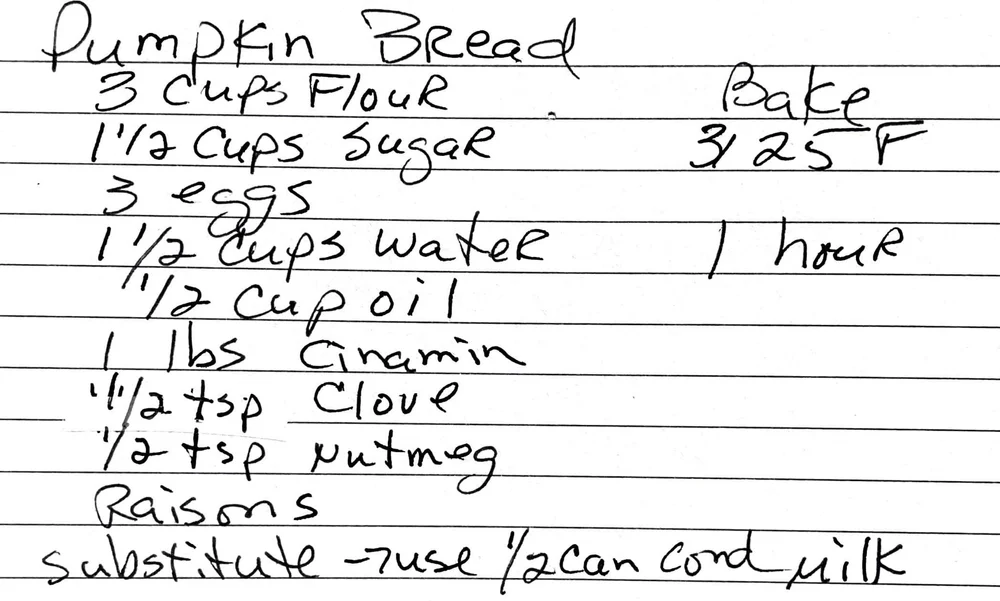 Pumpkin Bread
3 Cups Flour
Bake
1 1/2 Cups Sugar
325 F
3 eggs
1 1/2 Cups water
1 hour
1/2 Cup oil
1 lbs Cinamin
1/2 tsp Clove
1/2 tsp Nutmeg
Raisons
substitute → use 1/2 can cond milk